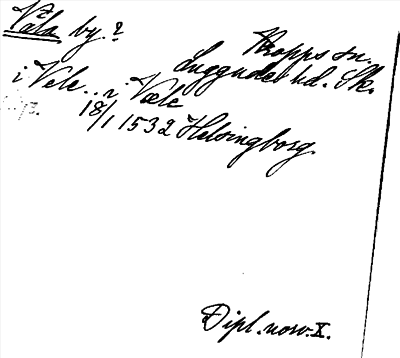 Väla by. ?
Kropps sn.
Luggude hd. Sk.
i Vele.. i Væle
18/1 1532 Helsingborg.
Dipl. norv. X.